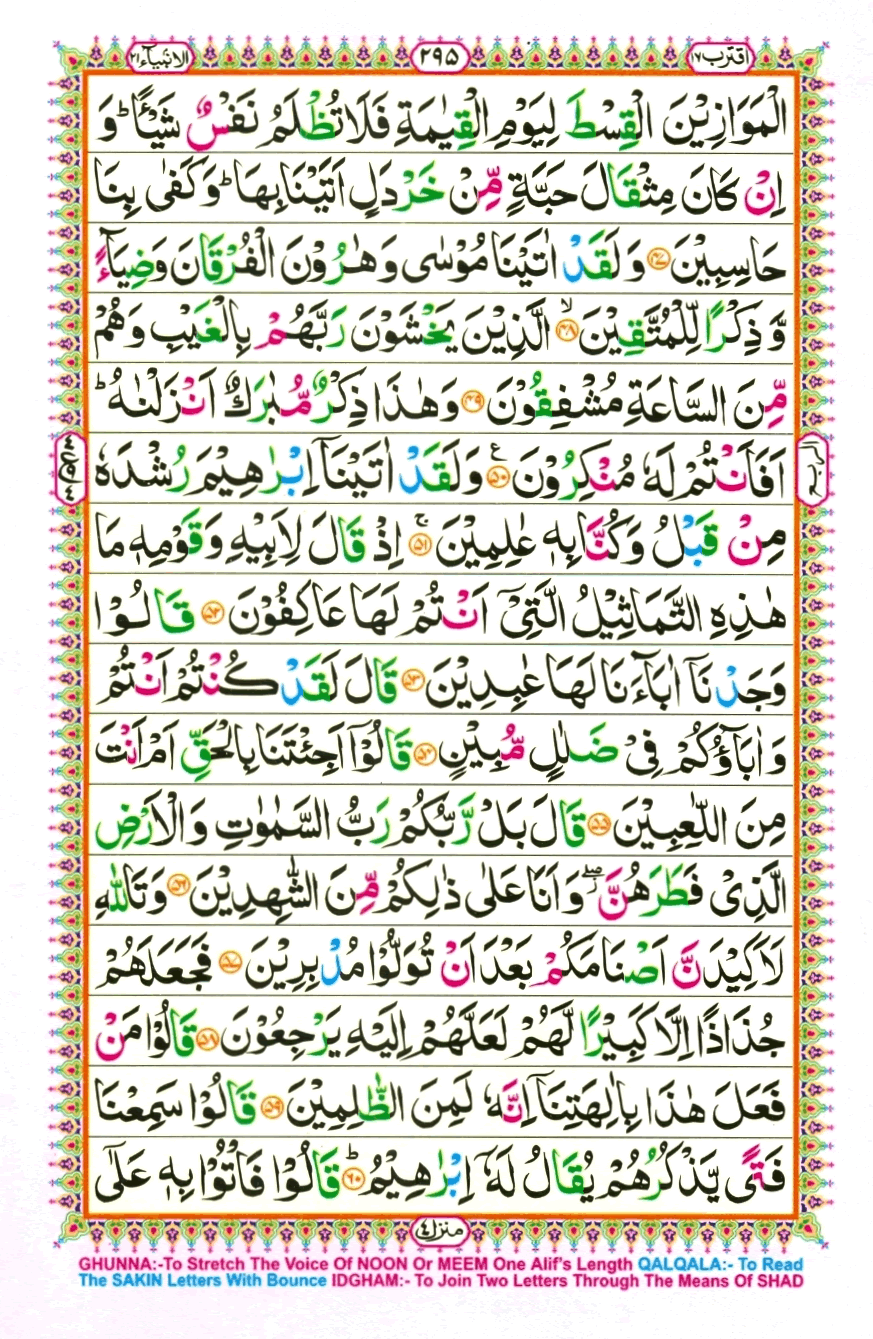 اقترب ١٧
٢٩٥
الانبیآء ٢١
الْمَوَازِیْنَ الْقِسْطَ لِیَوْمِ الْقِیٰمَةِ فَلَا تُظْلَمُ نَفْسٌ شَیْـًٔا ؕ وَ
اِنْ كَانَ مِثْقَالَ حَبَّةٍ مِّنْ خَرْدَلٍ اَتَیْنَا بِهَا ؕ وَ كَفٰی بِنَا
حَاسِبِیْنَ ﴿۴۷﴾ وَ لَقَدْ اٰتَیْنَا مُوْسٰی وَ هٰرُوْنَ الْفُرْقَانَ وَ ضِیَآءً
وَّ ذِكْرًا لِّلْمُتَّقِیْنَ ۙ﴿۴۸﴾ الَّذِیْنَ یَخْشَوْنَ رَبَّهُمْ بِالْغَیْبِ وَ هُمْ
مِّنَ السَّاعَةِ مُشْفِقُوْنَ ﴿۴۹﴾ وَ هٰذَا ذِكْرٌ مُّبٰرَكٌ اَنْزَلْنٰهُ ؕ
اَفَاَنْتُمْ لَهٗ مُنْكِرُوْنَ ﴿۵۰﴾ ع وَ لَقَدْ اٰتَیْنَاۤ اِبْرٰهِیْمَ رُشْدَهٗ
مِنْ قَبْلُ وَ كُنَّا بِهٖ عٰلِمِیْنَ ۚ﴿۵۱﴾ اِذْ قَالَ لِاَبِیْهِ وَ قَوْمِهٖ مَا
هٰذِهِ التَّمَاثِیْلُ الَّتِیْۤ اَنْتُمْ لَهَا عَاكِفُوْنَ ﴿۵۲﴾ قَالُوْا
وَجَدْنَاۤ اٰبَآءَنَا لَهَا عٰبِدِیْنَ ﴿۵۳﴾ قَالَ لَقَدْ كُنْتُمْ اَنْتُمْ
وَ اٰبَآؤُكُمْ فِیْ ضَلٰلٍ مُّبِیْنٍ ﴿۵۴﴾ قَالُوْۤا اَجِئْتَنَا بِالْحَقِّ اَمْ اَنْتَ
مِنَ اللّٰعِبِیْنَ ﴿۵۵﴾ قَالَ بَلْ رَّبُّكُمْ رَبُّ السَّمٰوٰتِ وَ الْاَرْضِ
الَّذِیْ فَطَرَهُنَّ ۖؗ وَ اَنَا عَلٰی ذٰلِكُمْ مِّنَ الشّٰهِدِیْنَ ﴿۵۶﴾ وَ تَاللّٰهِ
لَاَكِیْدَنَّ اَصْنَامَكُمْ بَعْدَ اَنْ تُوَلُّوْا مُدْبِرِیْنَ ﴿۵۷﴾ فَجَعَلَهُمْ
جُذَاذًا اِلَّا كَبِیْرًا لَّهُمْ لَعَلَّهُمْ اِلَیْهِ یَرْجِعُوْنَ ﴿۵۸﴾ قَالُوْا مَنْ
فَعَلَ هٰذَا بِاٰلِهَتِنَاۤ اِنَّهٗ لَمِنَ الظّٰلِمِیْنَ ﴿۵۹﴾ قَالُوْا سَمِعْنَا
فَتًی یَّذْكُرُهُمْ یُقَالُ لَهٗۤ اِبْرٰهِیْمُ ؕ﴿۶۰﴾ قَالُوْا فَاْتُوْا بِهٖ عَلٰۤی
منزل ۴
GHUNNA:-To Stretch The Voice Of NOON Or MEEM One Alif's Length QALQALA:- To Read
The SAKIN Letters With Bounce IDGHAM:- To Join Two Letters Through The Means Of SHAD